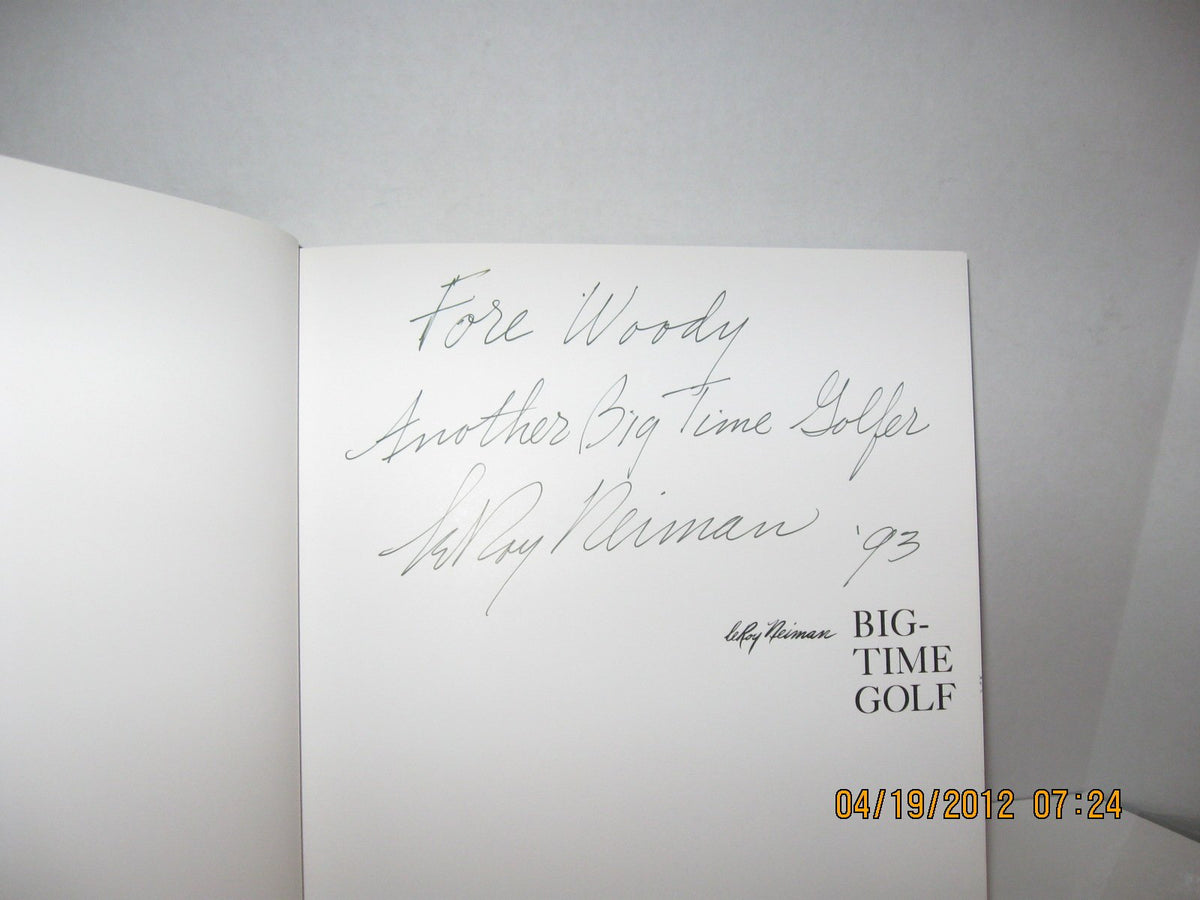 Fore Woody
Another Big Time Golfer
LeRoy Neiman '93
leRoy Neiman
BIG-
TIME
GOLF
04/19/2012 07:24